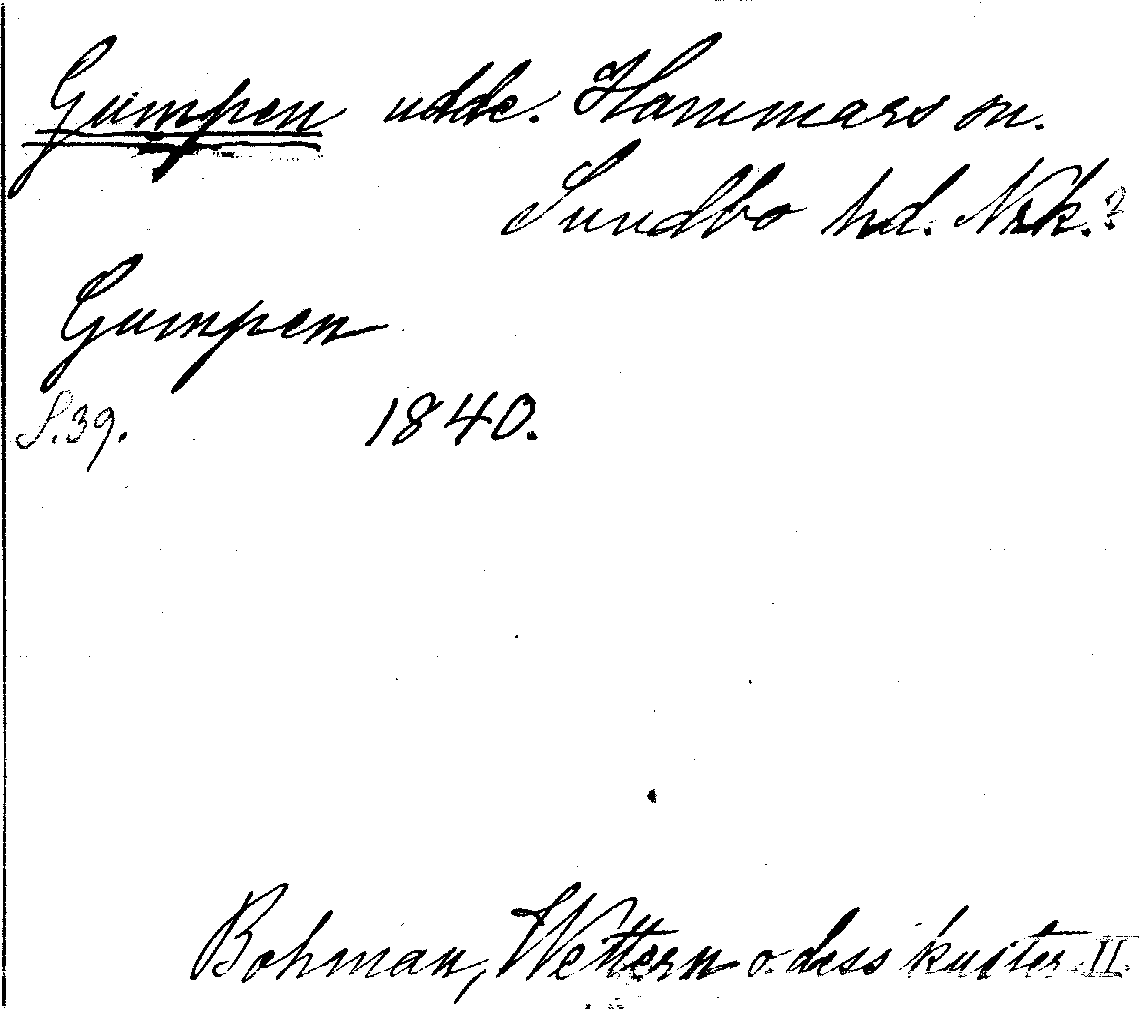 Gumpen udde. Hammars sn.
Sundbo hd. Nrk.?
Gumpen
S. 39. 1840.
Bohman, Wettern o. dess kuster II.